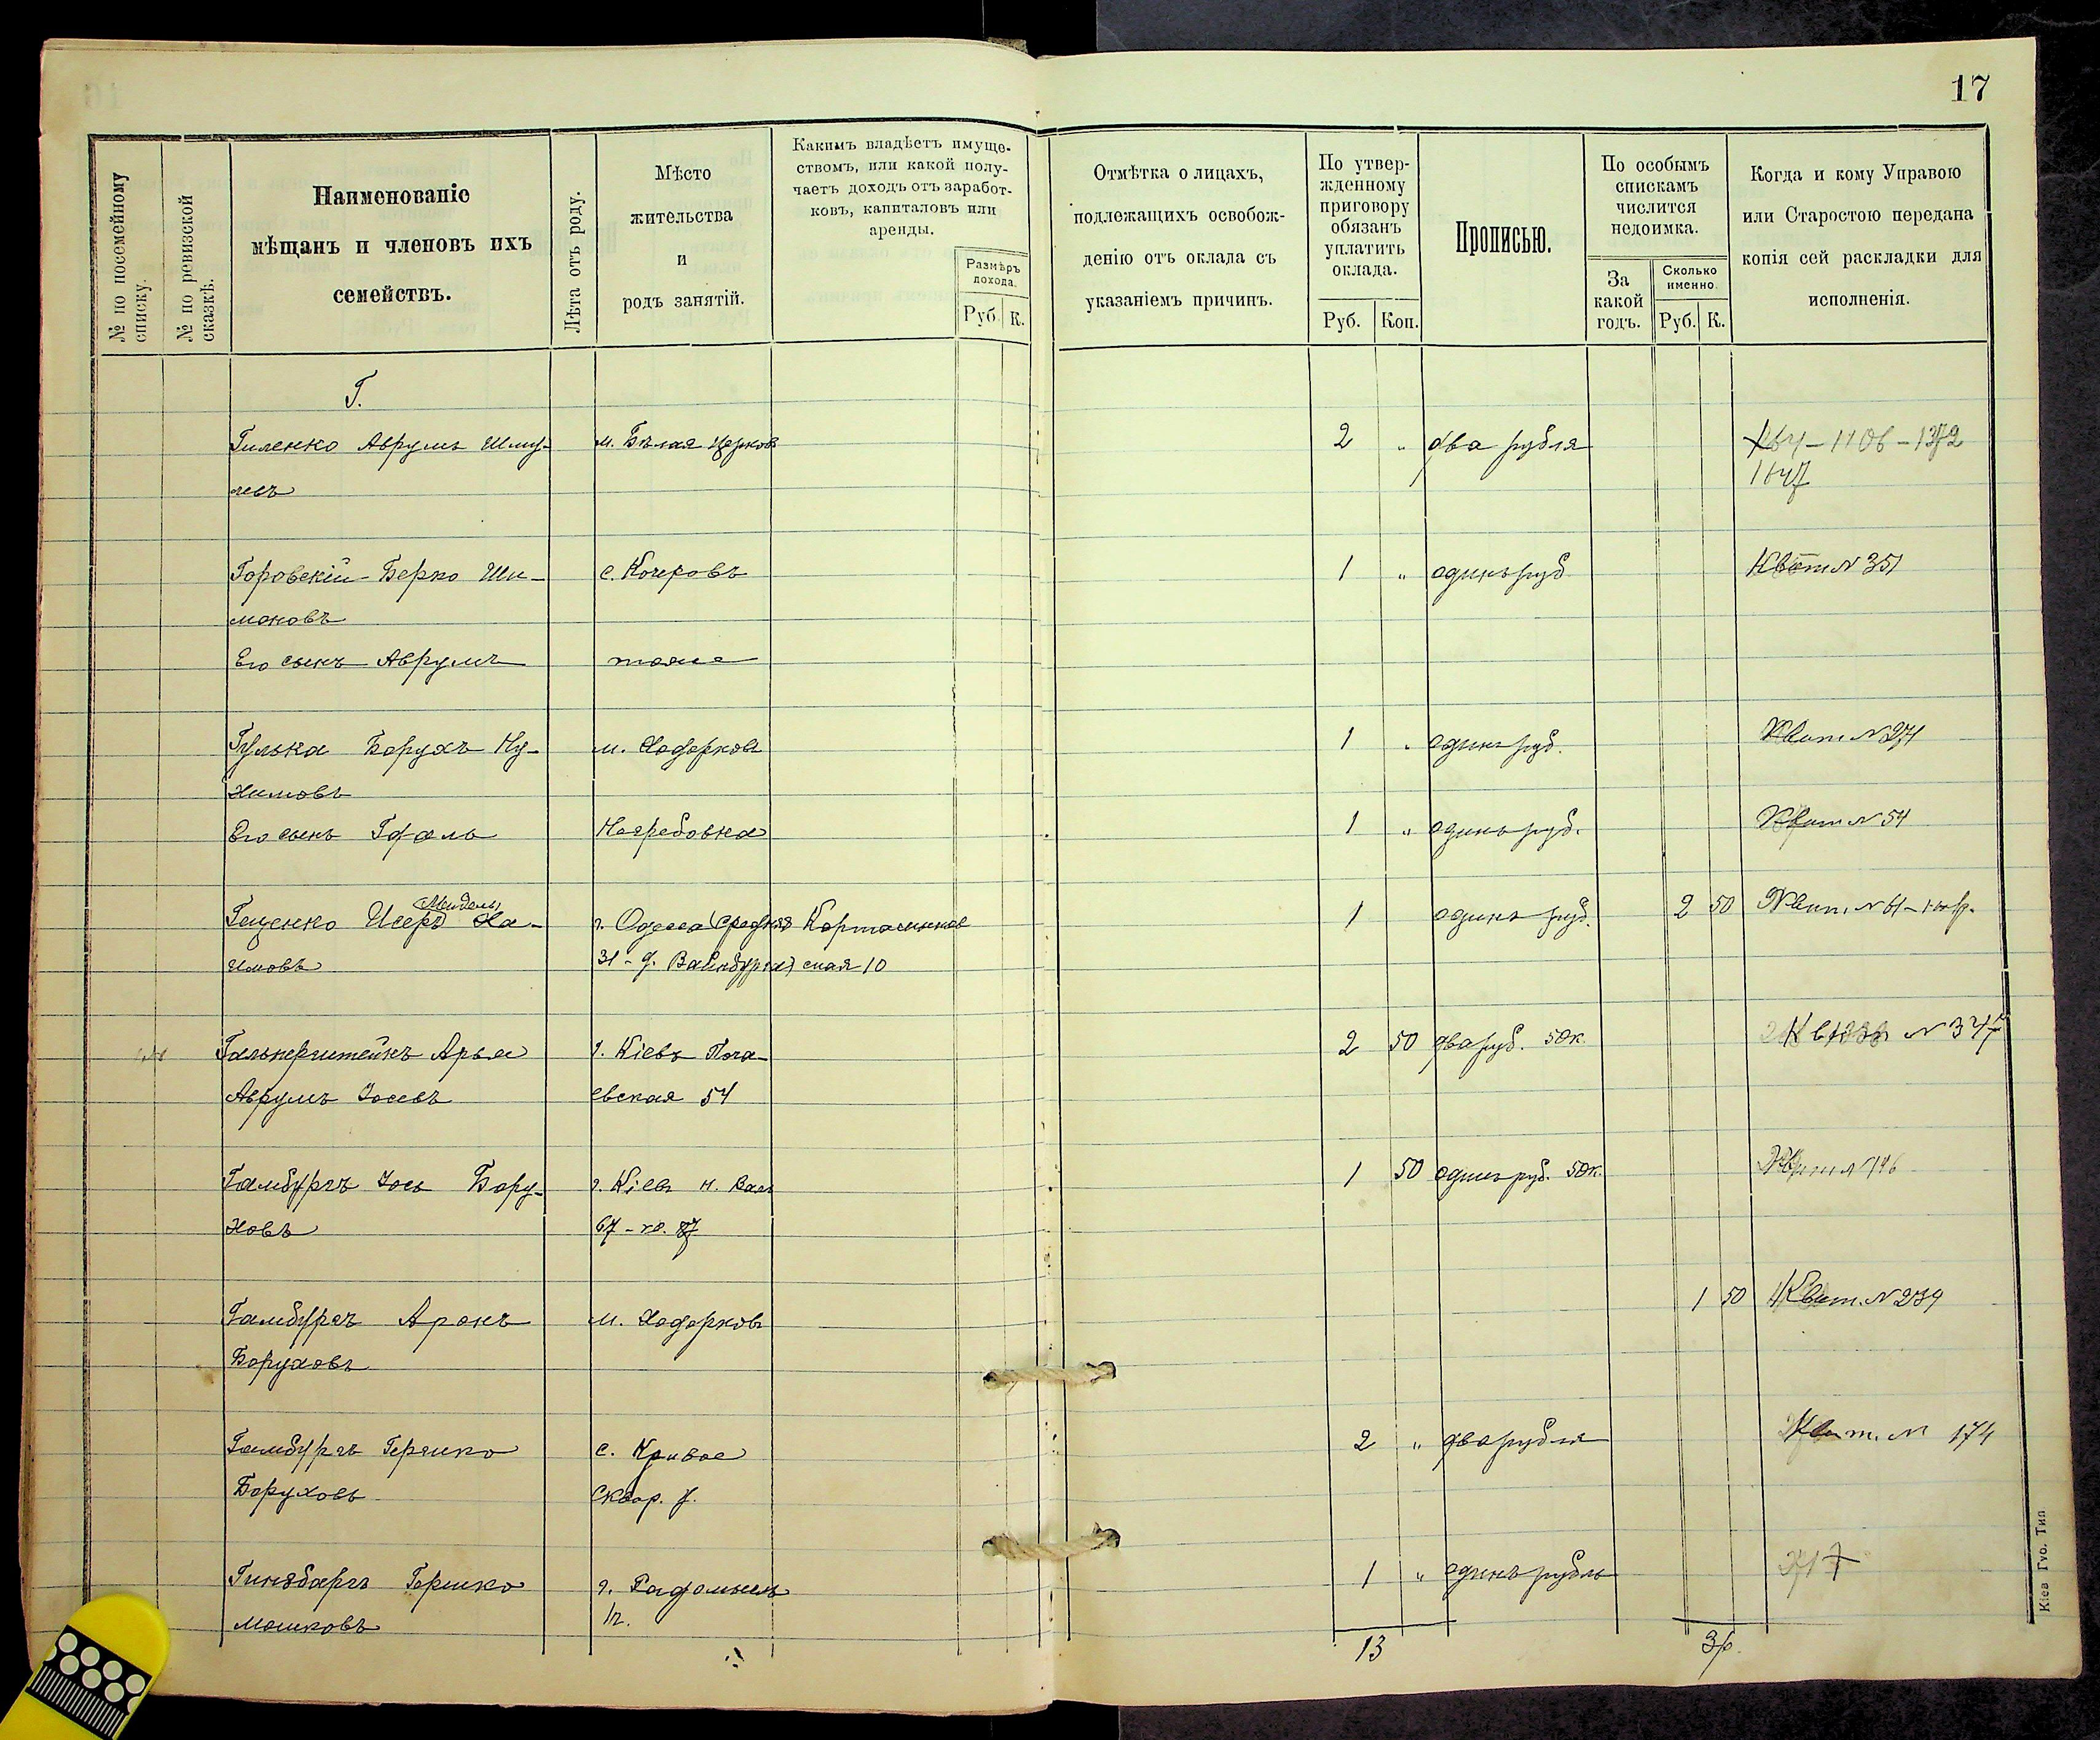 17
№ по посемейному списку.
№ по ревизской сказкѣ.
Наименованіе
мѣщанъ и членовъ ихъ
семействъ.
Лѣта отъ роду.
Мѣсто
жительства
и
родъ занятій.
Какимъ владѣетъ имуще-
ствомъ, или какой полу-
чаетъ доходъ отъ заработ-
ковъ, капиталовъ или
аренды.
Размѣръ
дохода.
Руб. К.
Отмѣтка о лицахъ,
подлежащихъ освобож-
денію отъ оклада съ
указаніемъ причинъ.
По утвер-
жденному
приговору
обязанъ
уплатить
оклада.
Руб. Коп.
Прописью.
По особымъ
спискамъ
числится
недоимка.
За
какой
годъ.
Сколько
именно.
Руб. К.
Когда и кому Управою
или Старостою передана
копія сей раскладки для
исполненія.
Г.
Гиленко Аврумъ Шму- м. Бѣлая Церковь 2 " два рубля 1106 - 1372
левъ 1647
Горовскій Берко Ши- с. Кочеровъ 1 " одинъ руб Квит № 351
моновъ
Его сынъ Аврумъ тоже
Гулька Борухъ Ну- м. Ходорковъ 1 " одинъ руб. Квит. № 274
химовъ
Его сынъ Негребовка 1 " одинъ руб. Квит № 54
Мендель
Геценко Исеръ Ха- г. Одесса (Средняя 1 одинъ руб. 2 50 Квит. № 61
имовъ 31 - д. Вайнбурга) ская 10
Гальперштейнъ Арья г. Кіевъ Поча- 2 50 два руб. 50к. №
Аврумъ Іосевъ евская 54
Гамбургъ Іось Бору- г. Кіевъ н. Валъ 1 50 одинъ руб. 50к. 146
ховъ 67 - кв. 87
Гамбургъ Аронъ м. Ходорковъ 1 50 Квит. № 239
Боруховъ
Гамбургъ Гершко с. Кривое 2 " два рубля Квит. № 174
Боруховъ Сквир. у.
Гинзбургъ Гершко г. Радомысль 1 " одинъ рубль
Мошковъ
13 3р.
Кіев Губ. Тип